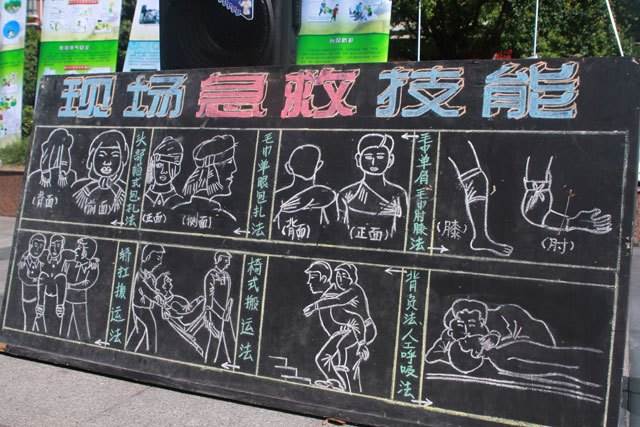 现场急救技能
(背面)
(前面)
头部帽式包扎法
(正面)
(侧面)
毛巾单眼包扎法
(背面)
(正面)
毛巾单肩毛巾肘膝法
(膝)
(肘)
轿扛搬运法
椅式搬运法
背负法、人工呼吸法